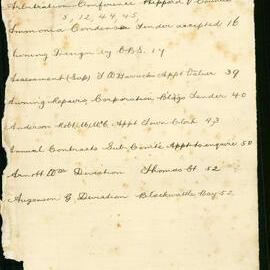 Arbitration Conference Shepperd v Council
5, 12, 44, 45,
Ammonia Condenser Tender accepted 16
Awning Design by C.B.S. 17
Assessment (Sup) J A Garrick Appt Valuer 39
Awning Repairs Corporation Bldgs Tender 40
Anderson Robt Appt Town Clerk 43
Annual Contracts Sub Comte Appt to enquire 50
Arnott Wm Donation Thomas St 52
Augenson G Donation Blackwattle Bay 52